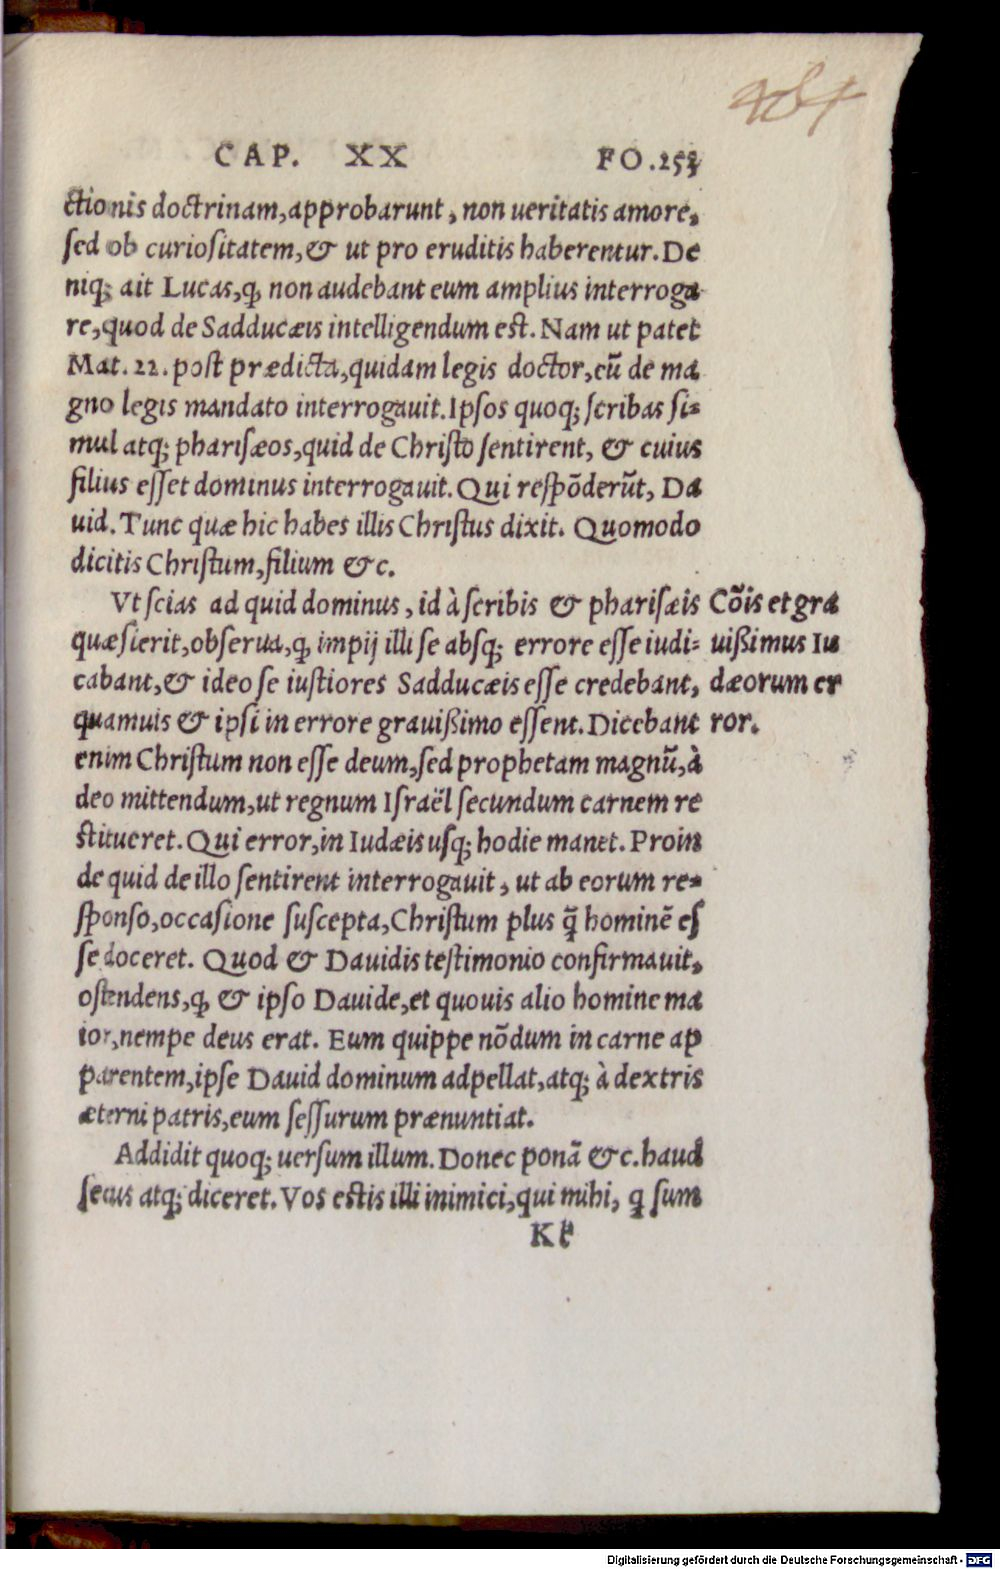 CAP. XX FO.253
ctionis doctrinam,approbarunt, non ueritatis amore,
sed ob curiositatem,& ut pro eruditis haberentur. De
niq; ait Lucas,ꝙ non audebant eum amplius interroga
re,quod de Sadducæis intelligendum est. Nam ut patet
Mat. 22. post prædicta,quidam legis doctor,eū de ma
gno legis mandato interrogauit. Ipsos quoq; scribas si=
mul atq; pharisæos,quid de Christo sentirent, & cuius
filius esset dominus interrogauit. Qui respōderūt, Da
uid. Tunc quæ hic habes illis Christus dixit. Quomodo
dicitis Christum,filium &c.
Vt scias ad quid dominus, id à scribis & pharisæis
quæsierit,obserua,ꝙ impij illi se absq; errore esse iudi=
cabant,& ideo se iustiores Sadducæis esse credebant,
quamuis & ipsi in errore grauißimo essent. Dicebant
enim Christum non esse deum,sed prophetam magnū,à
deo mittendum,ut regnum Israël secundum carnem re
stitueret. Qui error,in Iudæis usq; hodie manet. Proin
de quid de illo sentirent interrogauit, ut ab eorum re=
sponso,occasione suscepta,Christum plus q̄ hominē es
se doceret. Quod & Dauidis testimonio confirmauit,
ostendens,ꝙ & ipso Dauide,et quouis alio homine ma
ior,nempe deus erat. Eum quippe nōdum in carne ap
parentem,ipse Dauid dominum adpellat,atq; à dextris
æterni patris,eum sessurum prænuntiat.
Addidit quoq; uersum illum. Donec ponā &c. haud
secus atq; diceret. Vos estis illi inimici,qui mihi, q sum
Cōis et gra
uißimus Iu
dæorum er
ror.
Digitalisierung gefördert durch die Deutsche Forschungsgemeinschaft - DFG